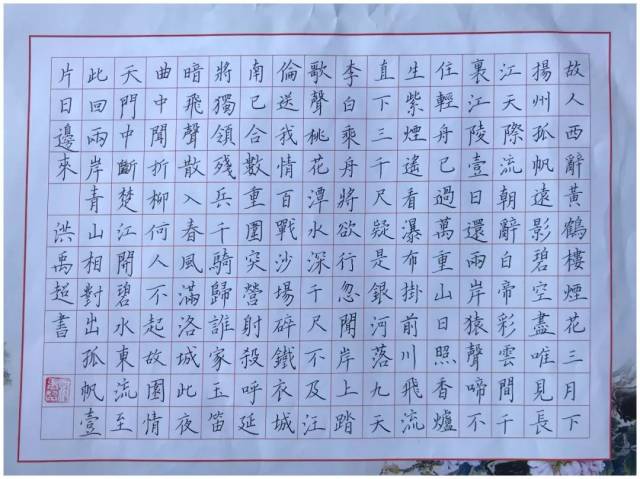 故人西辭黃鶴樓煙花三月下
揚州孤帆遠影碧空盡唯見長
江天際流朝辭白帝彩雲間千
裏江陵壹日還兩岸猿聲啼不
住輕舟已過萬重山日照香爐
生紫煙遙看瀑布掛前川飛流
直下三千尺疑是銀河落九天
李白乘舟將欲行忽聞岸上踏
歌聲桃花潭水深千尺不及汪
倫送我情百戰沙場碎鐵衣城
南已合數重圍突營射殺呼延
將獨領殘兵千騎歸誰家玉笛
暗飛聲散入春風滿洛城此夜
曲中聞折柳何人不起故園情
天門中斷楚江開碧水東流至
此回兩岸青山相對出孤帆壹
片日邊來 洪禹超書